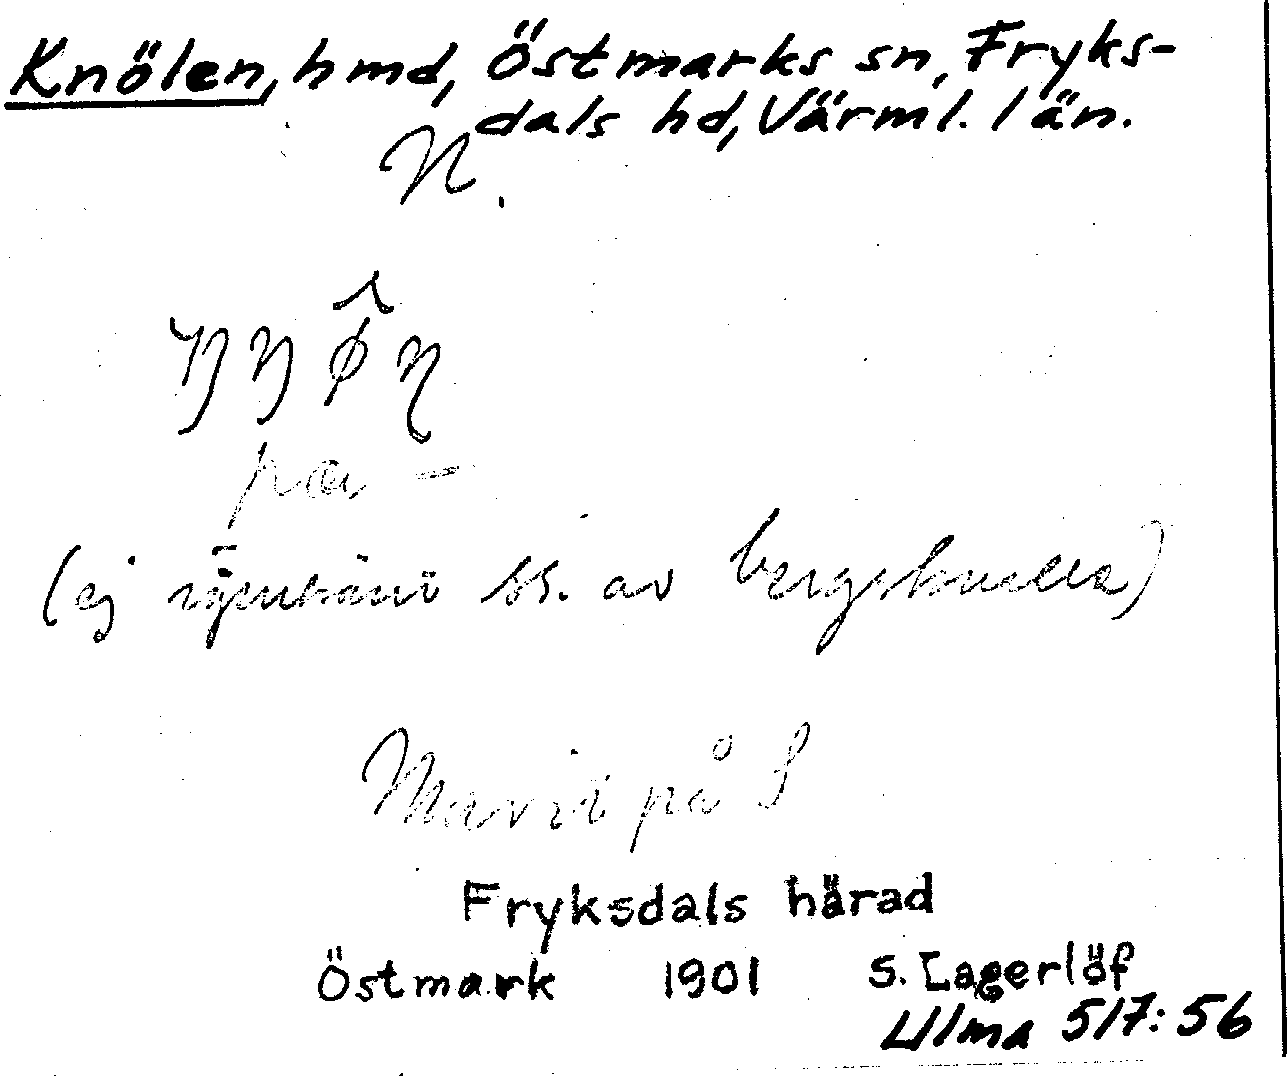 Knölen, hmd, Östmarks sn, Fryks-
dals hd, Värml. län.
N.
på –
(ej ss. av bergskulla)
på S
Fryksdals härad
Östmark 1901 S. Lagerlöf
Ulma 517:56